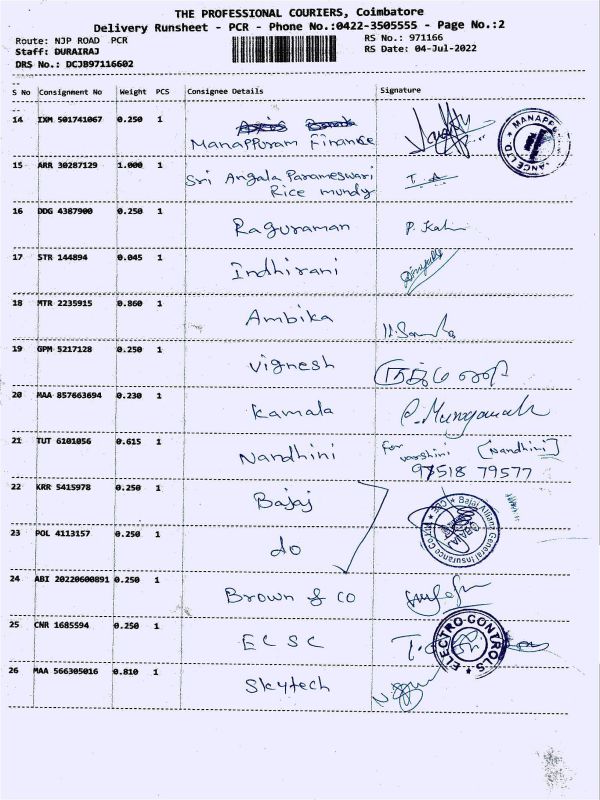 THE PROFESSIONAL COURIERS, Coimbatore
Delivery Runsheet - PCR - Phone No.:0422-3505555 - Page No.:2
Route: NJP ROAD PCR
RS No.: 971166
Staff: DURAIRAJ
RS Date: 04-Jul-2022
DRS No.: DCJB97116602
S No Consignment No Weight PCS Consignee Details Signature
14 IXM 501741067 0.250 1
Manappuram Finance
MANAPPU
ANCE LTD.
15 ARR 30287129 1.000 1 Sri Angala Parameswari
Rice mundy
16 DDG 4387900 0.250 1 Raguraman
17 STR 144894 0.045 1 Indhirani
18 MTR 2235915 0.860 1 Ambika
19 GPM 5217128 0.250 1 Vignesh
20 MAA 857663694 0.230 1 Kamala
21 TUT 6101056 0.615 1 Nandhini for varshini [Nandhini]
97518 79577
22 KRR 5415978 0.250 1 Bajaj
Bajaj Allianz General Insurance Co. CBE
23 POL 4113157 0.250 1 do
24 ABI 20220600891 0.250 1 Brown & CO
25 CNR 1685594 0.250 1 ECSC
ELECTRO-CONTROLS
26 MAA 566305016 0.810 1 Skytech